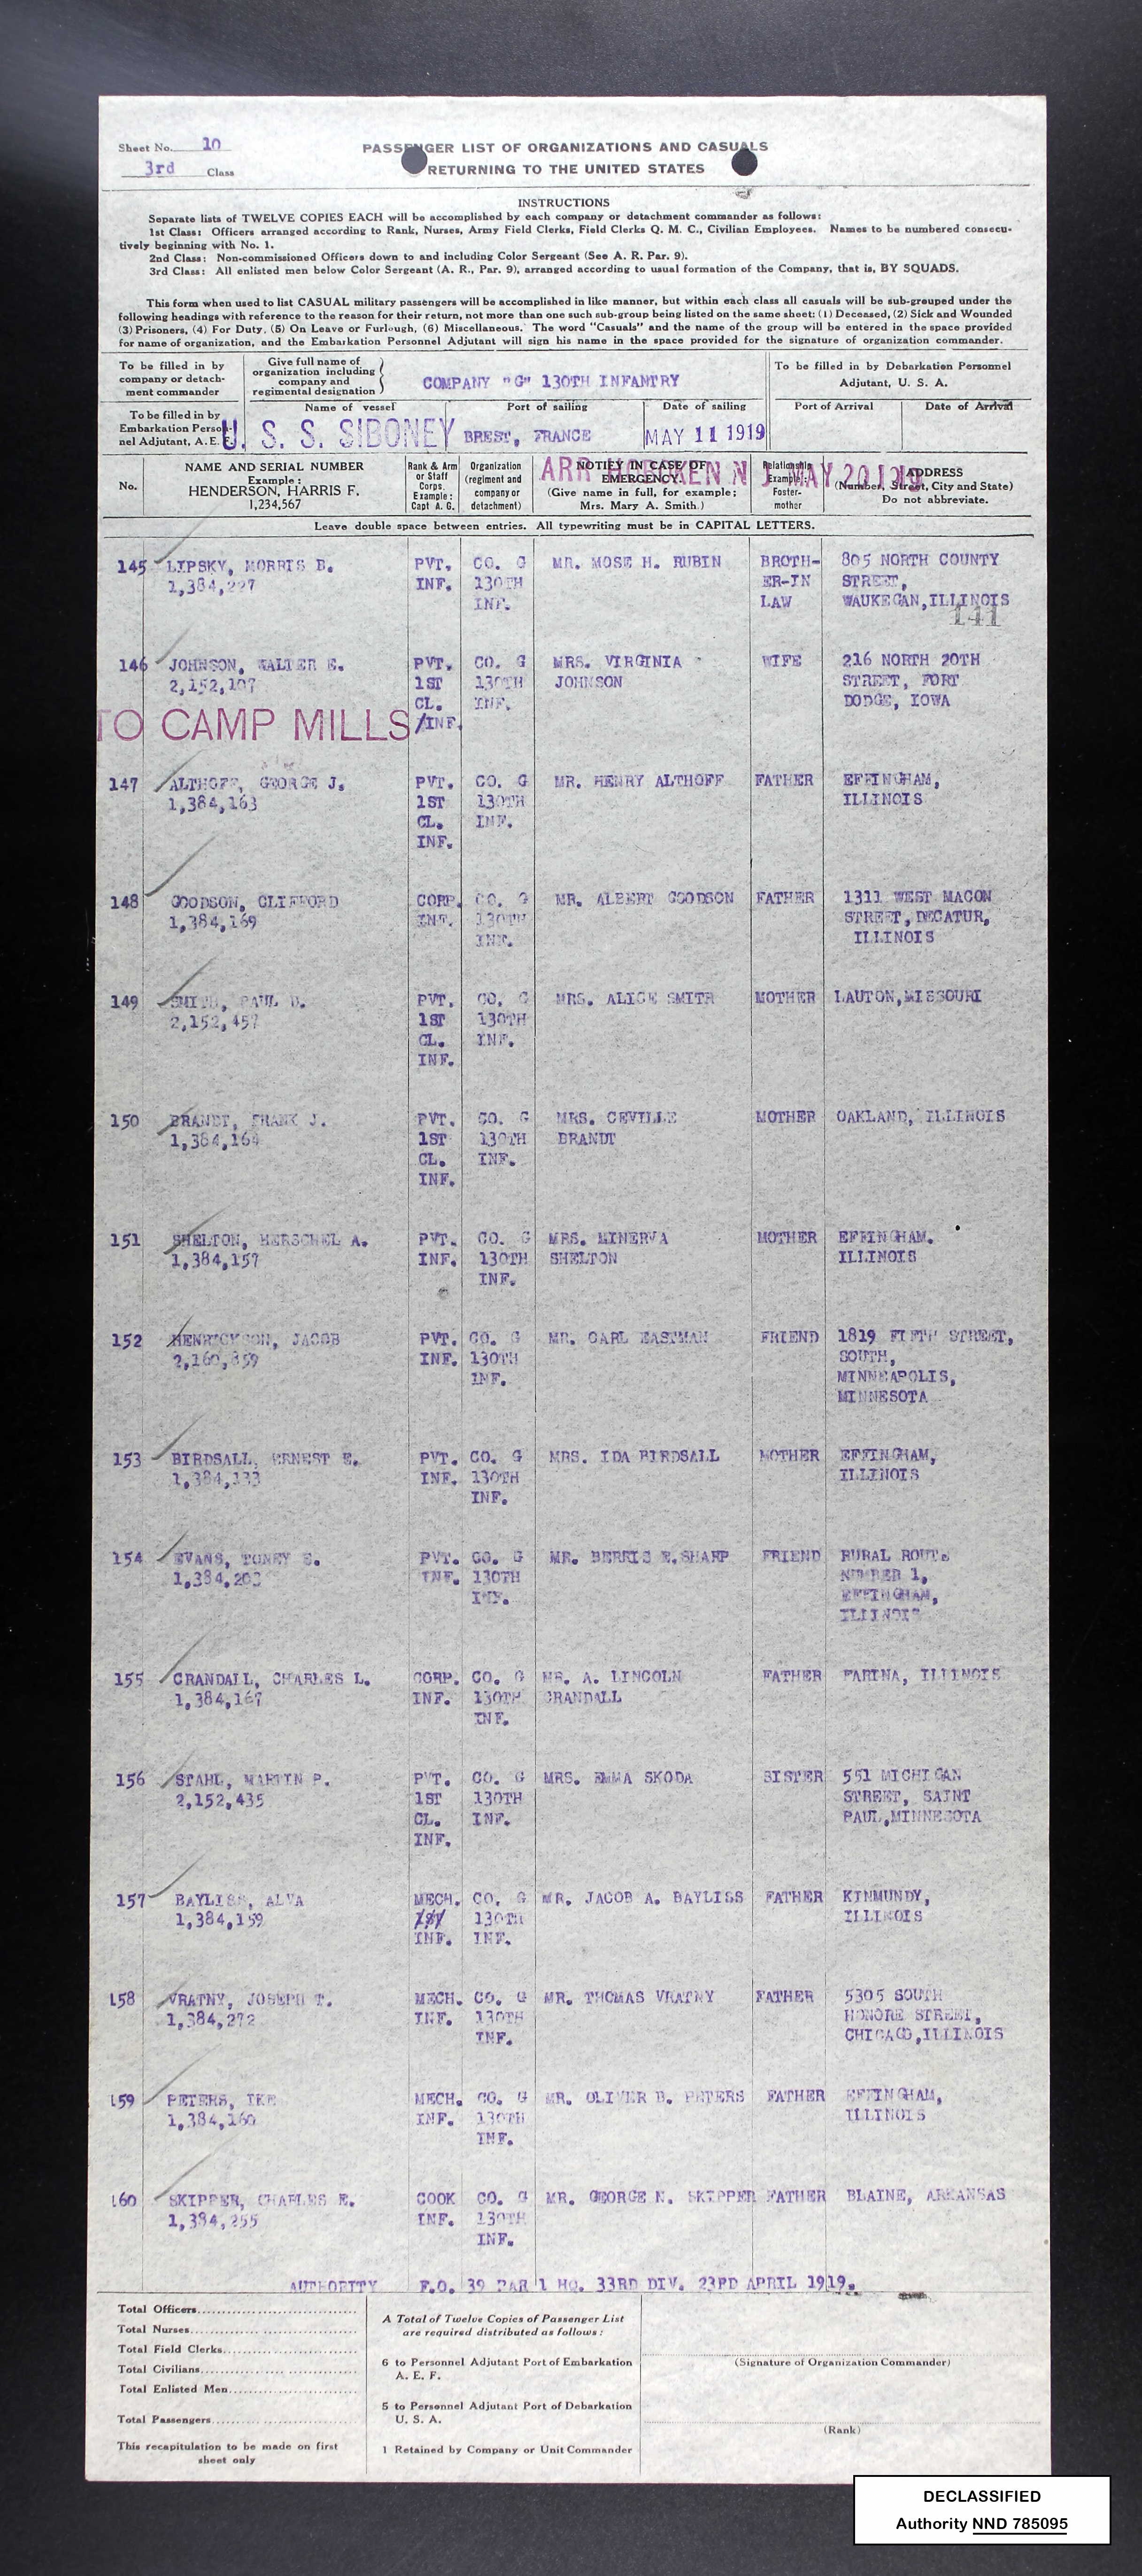 Sheet No. 10
PASSENGER LIST OF ORGANIZATIONS AND CASUALS
3rd Class
RETURNING TO THE UNITED STATES
INSTRUCTIONS
Separate lists of TWELVE COPIES EACH will be accomplished by each company or detachment commander as follows:
1st Class: Officers arranged according to Rank, Nurses, Army Field Clerks, Field Clerks Q. M. C., Civilian Employees. Names to be numbered consecu-
tively beginning with No. 1.
2nd Class: Non-commissioned Officers down to and including Color Sergeant (See A. R. Par. 9).
3rd Class: All enlisted men below Color Sergeant (A. R., Par. 9), arranged according to usual formation of the Company, that is, BY SQUADS.
This form when used to list CASUAL military passengers will be accomplished in like manner, but within each class all casuals will be sub-grouped under the
following headings with reference to the reason for their return, not more than one such sub-group being listed on the same sheet: (1) Deceased, (2) Sick and Wounded
(3) Prisoners, (4) For Duty, (5) On Leave or Furlough, (6) Miscellaneous. The word "Casuals" and the name of the group will be entered in the space provided
for name of organization, and the Embarkation Personnel Adjutant will sign his name in the space provided for the signature of organization commander.
To be filled in by
company or detach-
ment commander
Give full name of
organization including
company and
regimental designation
COMPANY "G" 130TH INFANTRY
To be filled in by Debarkation Personnel
Adjutant, U. S. A.
To be filled in by
Embarkation Person-
nel Adjutant, A. E. F.
Name of vessel
U. S. S. SIBONEY
Port of sailing
BREST, FRANCE
Date of sailing
MAY 11 1919
Port of Arrival
Date of Arrival
ARR HOBOKEN N J MAY 20 1919
No.
NAME AND SERIAL NUMBER
Example:
HENDERSON, HARRIS F.
1,234,567
Rank & Arm
or Staff
Corps.
Example:
Capt A. G.
Organization
(regiment and
company or
detachment)
NOTIFY IN CASE OF
EMERGENCY.
(Give name in full, for example;
Mrs. Mary A. Smith.)
Relationship
Example:
Foster-
mother
ADDRESS
(Number, Street, City and State)
Do not abbreviate.
Leave double space between entries. All typewriting must be in CAPITAL LETTERS.
145 LIPSKY, MORRIS B. PVT. CO. G MR. MOSE H. RUBIN BROTH- 805 NORTH COUNTY
1,384,227 INF. 130TH ER-IN STREET,
INF. LAW WAUKEGAN, ILLINOIS
141
146 JOHNSON, WALTER E. PVT. CO. G MRS. VIRGINIA WIFE 216 NORTH 20TH
2,152,107 1ST 130TH JOHNSON STREET, FORT
CL. INF. DODGE, IOWA
TO CAMP MILLS /INF.
147 ALTHOFF, GEORGE J. PVT. CO. G MR. HENRY ALTHOFF FATHER EFFINGHAM,
1,384,163 1ST 130TH ILLINOIS
CL. INF.
INF.
148 GOODSON, CLIFFORD CORP. CO. G MR. ALBERT GOODSON FATHER 1311 WEST MACON
1,384,169 INF. 130TH STREET, DECATUR,
INF. ILLINOIS
149 SMITH, PAUL D. PVT. CO. G MRS. ALICE SMITH MOTHER LAUTON, MISSOURI
2,152,457 1ST 130TH
CL. INF.
INF.
150 BRANDT, FRANK J. PVT. CO. G MRS. CEVILLE MOTHER OAKLAND, ILLINOIS
1,384,164 1ST 130TH BRANDT
CL. INF.
INF.
151 SHELTON, HERSCHEL A. PVT. CO. G MRS. MINERVA MOTHER EFFINGHAM.
1,384,157 INF. 130TH SHELTON ILLINOIS
INF.
152 HENRICKSON, JACOB PVT. CO. G MR. CARL EASTMAN FRIEND 1819 FIFTH STREET,
2,160,859 INF. 130TH SOUTH,
INF. MINNEAPOLIS,
MINNESOTA
153 BIRDSALL, ERNEST E. PVT. CO. G MRS. IDA BIRDSALL MOTHER EFFINGHAM,
1,384,133 INF. 130TH ILLINOIS
INF.
154 EVANS, TONEY E. PVT. CO. G MR. BERRIS E. SHARP FRIEND RURAL ROUTE
1,384,203 INF. 130TH NUMBER 1,
INF. EFFINGHAM,
ILLINOIS
155 CRANDALL, CHARLES L. CORP. CO. G MR. A. LINCOLN FATHER FARINA, ILLINOIS
1,384,167 INF. 130TH CRANDALL
INF.
156 STAHL, MARTIN P. PVT. CO. G MRS. EMMA SKODA SISTER 551 MICHIGAN
2,152,435 1ST 130TH STREET, SAINT
CL. INF. PAUL, MINNESOTA
INF.
157 BAYLISS, ALVA MECH. CO. G MR. JACOB A. BAYLISS FATHER KINMUNDY,
1,384,159 130TH ILLINOIS
INF. INF.
158 VRATNY, JOSEPH T. MECH. CO. G MR. THOMAS VRATNY FATHER 5305 SOUTH
1,384,272 INF. 130TH HONORE STREET,
INF. CHICAGO, ILLINOIS
159 PETERS, IKE MECH. CO. G MR. OLIVER B. PETERS FATHER EFFINGHAM,
1,384,160 INF. 130TH ILLINOIS
INF.
160 SKIPPER, CHARLES E. COOK CO. G MR. GEORGE N. SKIPPER FATHER BLAINE, ARKANSAS
1,384,255 INF. 130TH
INF.
AUTHORITY F.O. 39 PAR 1 HQ. 33RD DIV. 23RD APRIL 1919.
Total Officers
Total Nurses
Total Field Clerks
Total Civilians
Total Enlisted Men
Total Passengers
This recapitulation to be made on first
sheet only
A Total of Twelve Copies of Passenger List
are required distributed as follows:
6 to Personnel Adjutant Port of Embarkation
A. E. F.
5 to Personnel Adjutant Port of Debarkation
U. S. A.
1 Retained by Company or Unit Commander
(Signature of Organization Commander)
(Rank)
DECLASSIFIED
Authority NND 785095